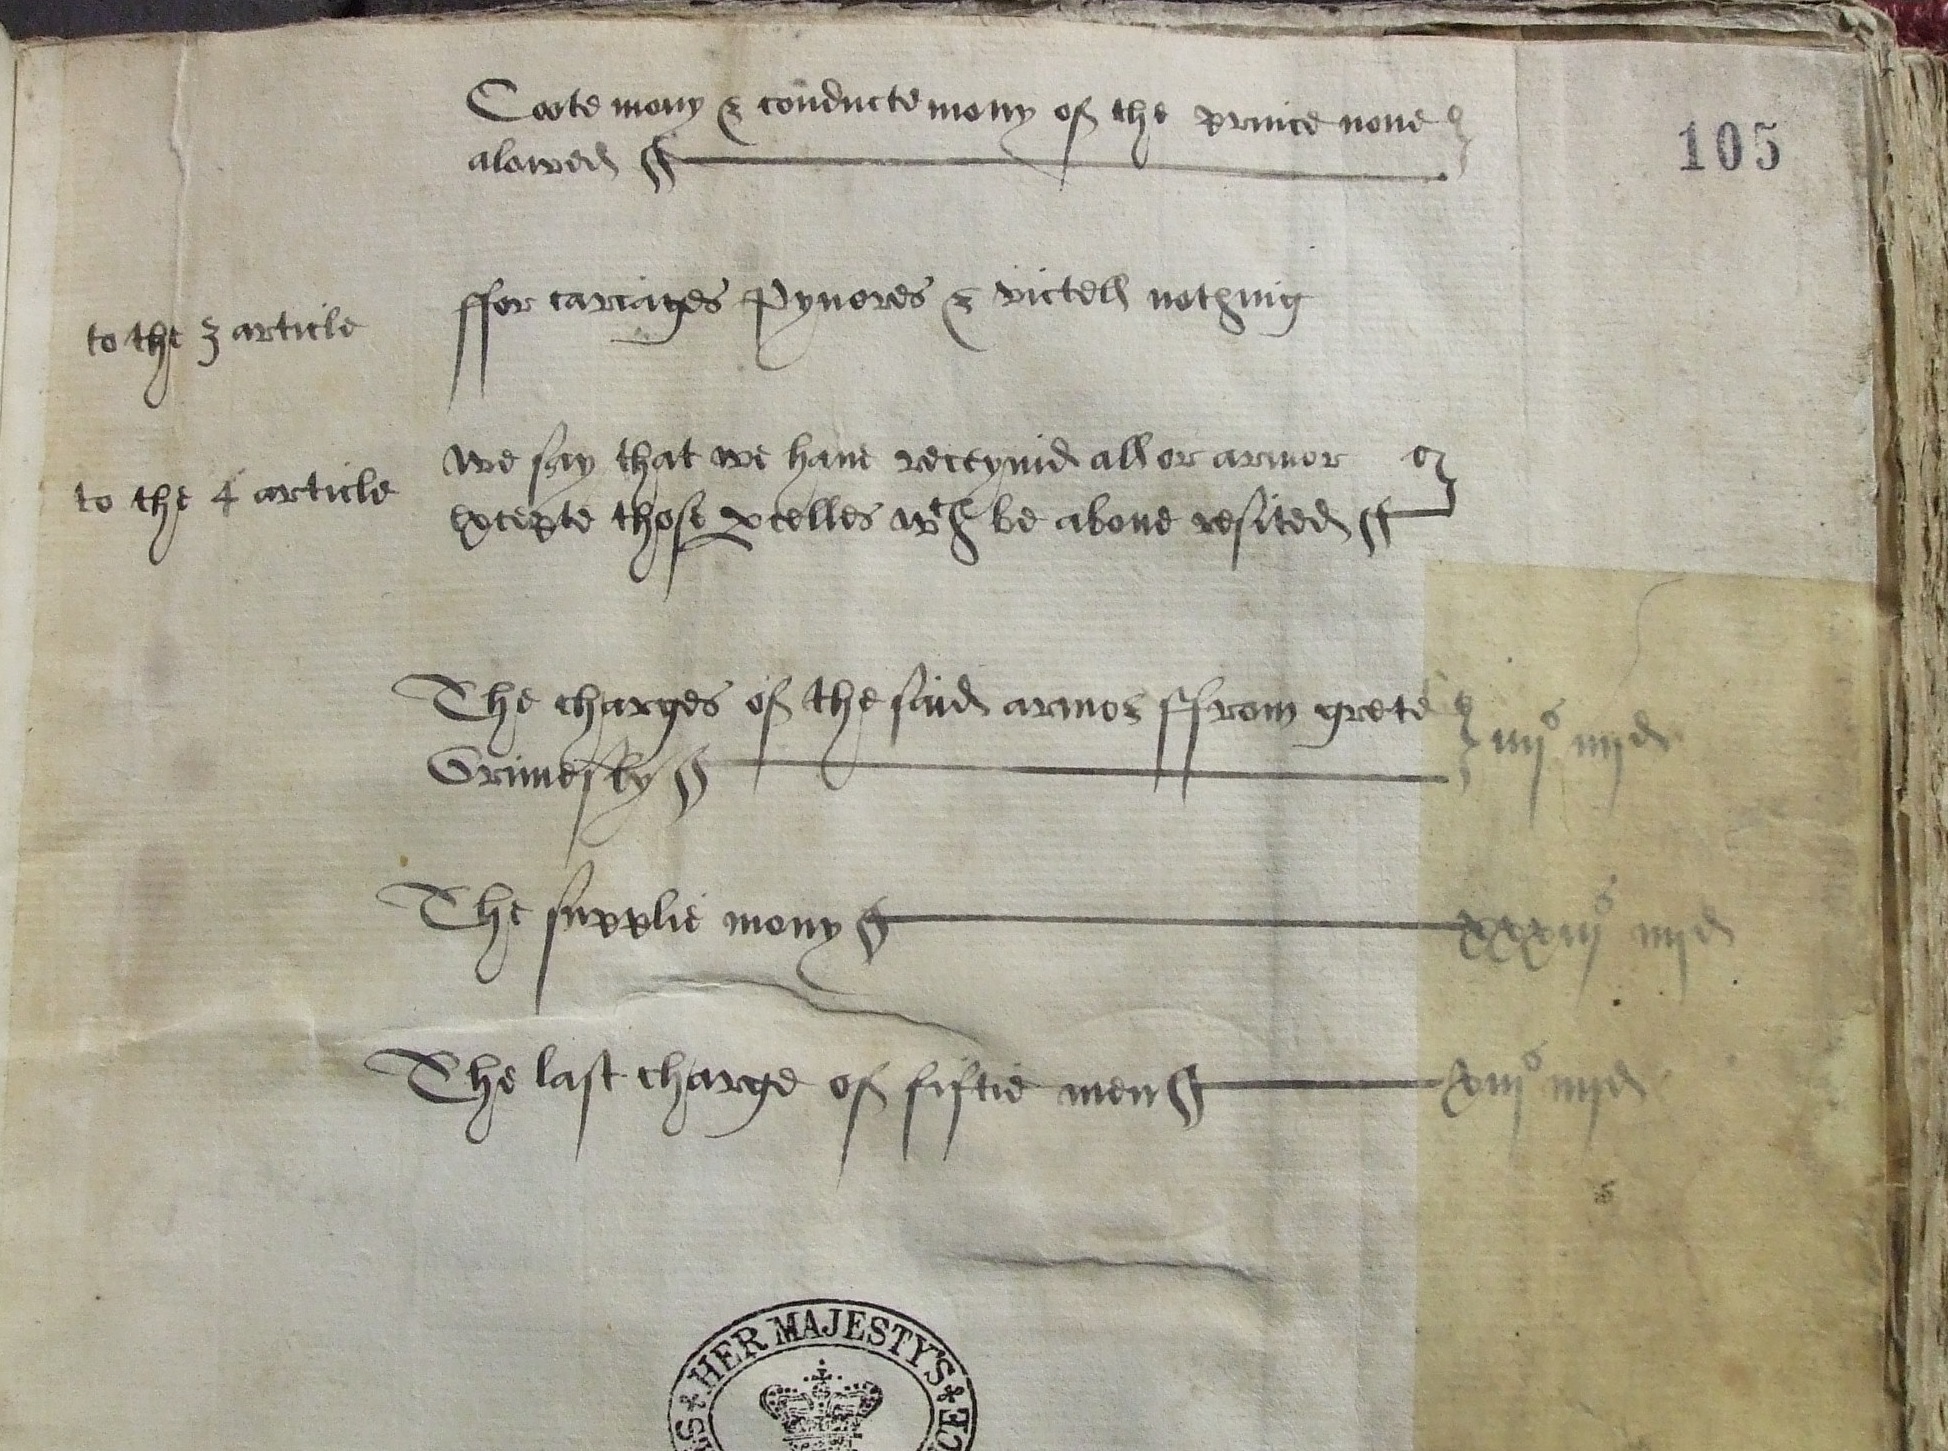 Coote mony & conducte mony of the prince none
alowed
105
to the 3 article
ffor cariages Pynores & victell nothing
to the 4 article
we say that we have receyvid all or armor
excepte those pcelles wch be above resited
The charges of the said armor ffrom grete
Grimesby
iiijs iiijd
The supplie mony
xxxiijs iiijd
The last charge of fiftie men
xiijs iiijd
HER MAJESTY'S